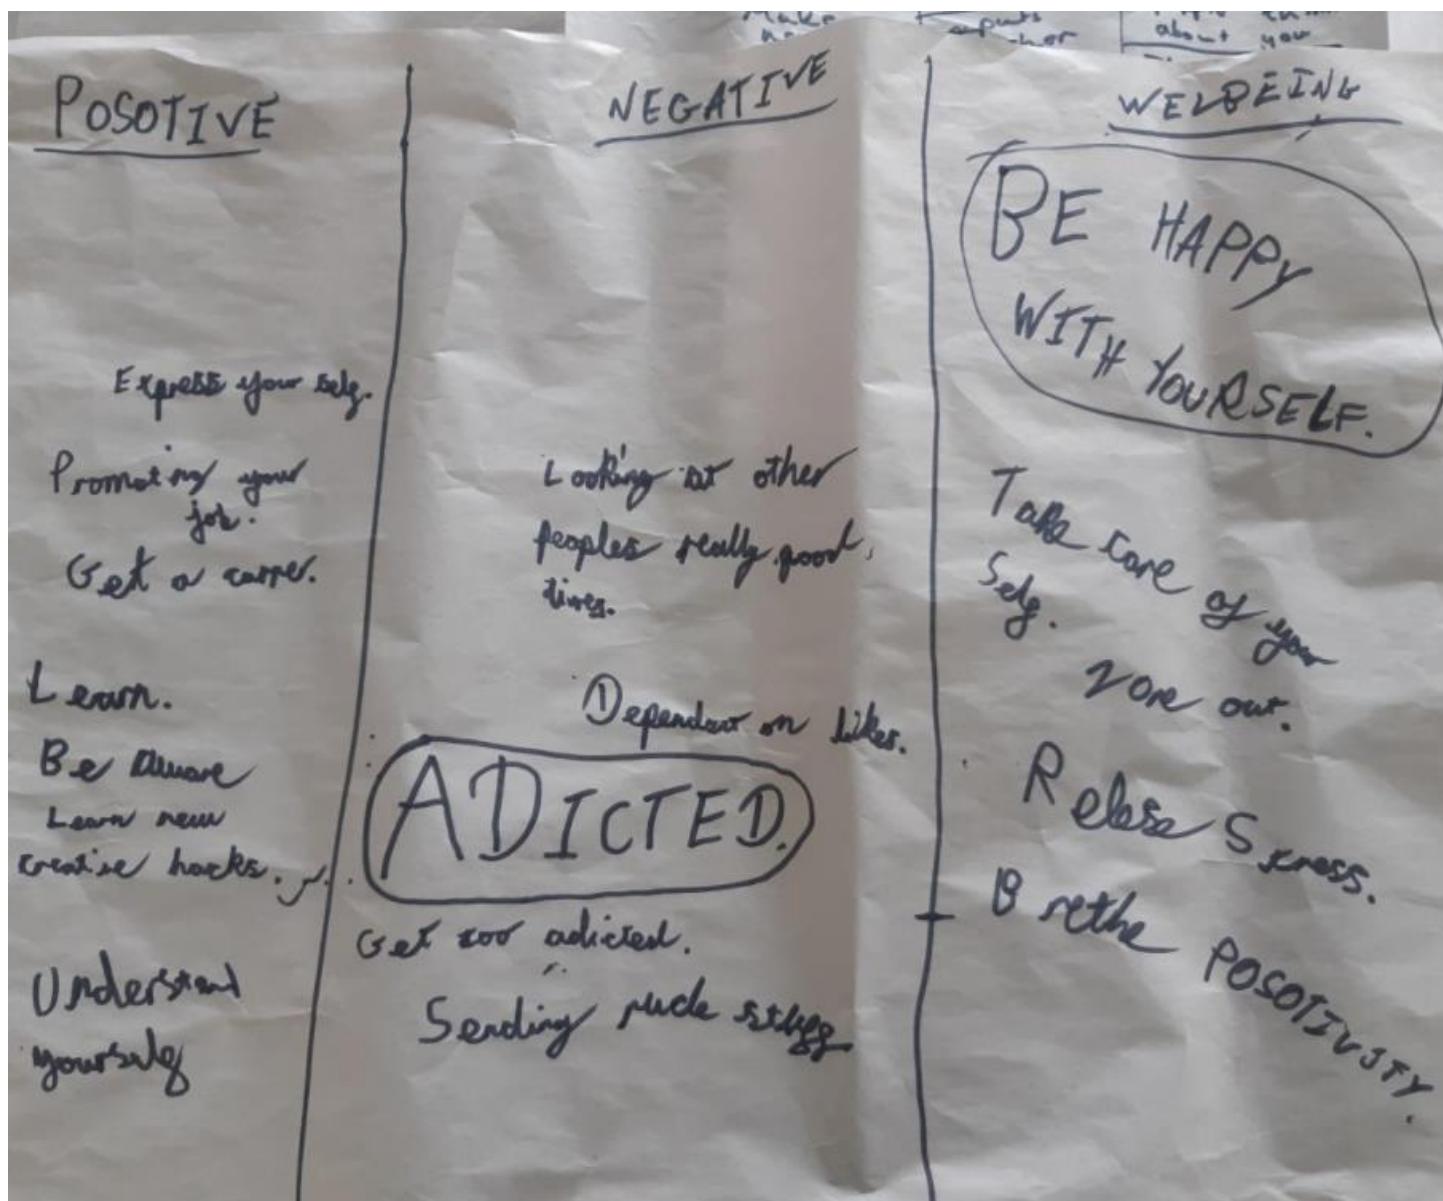 Make
puts
about you
POSOTIVE
Express your self.
Promoting your
job.
Get a carrer.
Learn.
Be Aware
Learn new
creative hacks.
Understand
yourself
NEGATIVE
Looking at other
peoples really good
lives.
Dependant on likes.
ADICTED.
Get too adicted.
Sending nude stuff
WELBEING
BE HAPPY
WITH YOURSELF.
Take care of your
self.
Zone out.
Relese Stress.
Brethe POSOTIVITY.